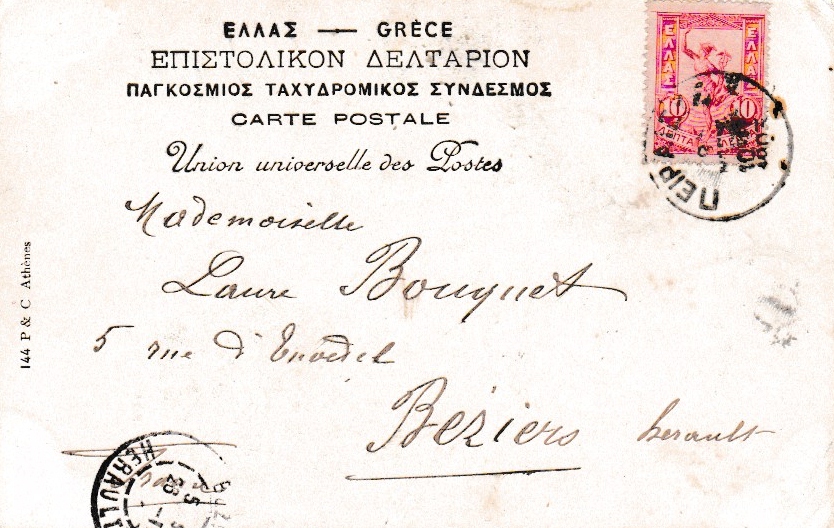 ΕΛΛΑΣ — GRÈCE
ΕΠΙΣΤΟΛΙΚΟΝ ΔΕΛΤΑΡΙΟΝ
ΠΑΓΚΟΣΜΙΟΣ ΤΑΧΥΔΡΟΜΙΚΟΣ ΣΥΝΔΕΣΜΟΣ
CARTE POSTALE
Union universelle des Postes
ΕΛΛΑΣ ΕΛΛΑΣ
10 10
ΛΕΠΤΑ
ΠΕΙΡΑ
Mademoiselle
Laure Bouquet
5 rue d'
Béziers herault
144 P & C Athènes
HERAULT